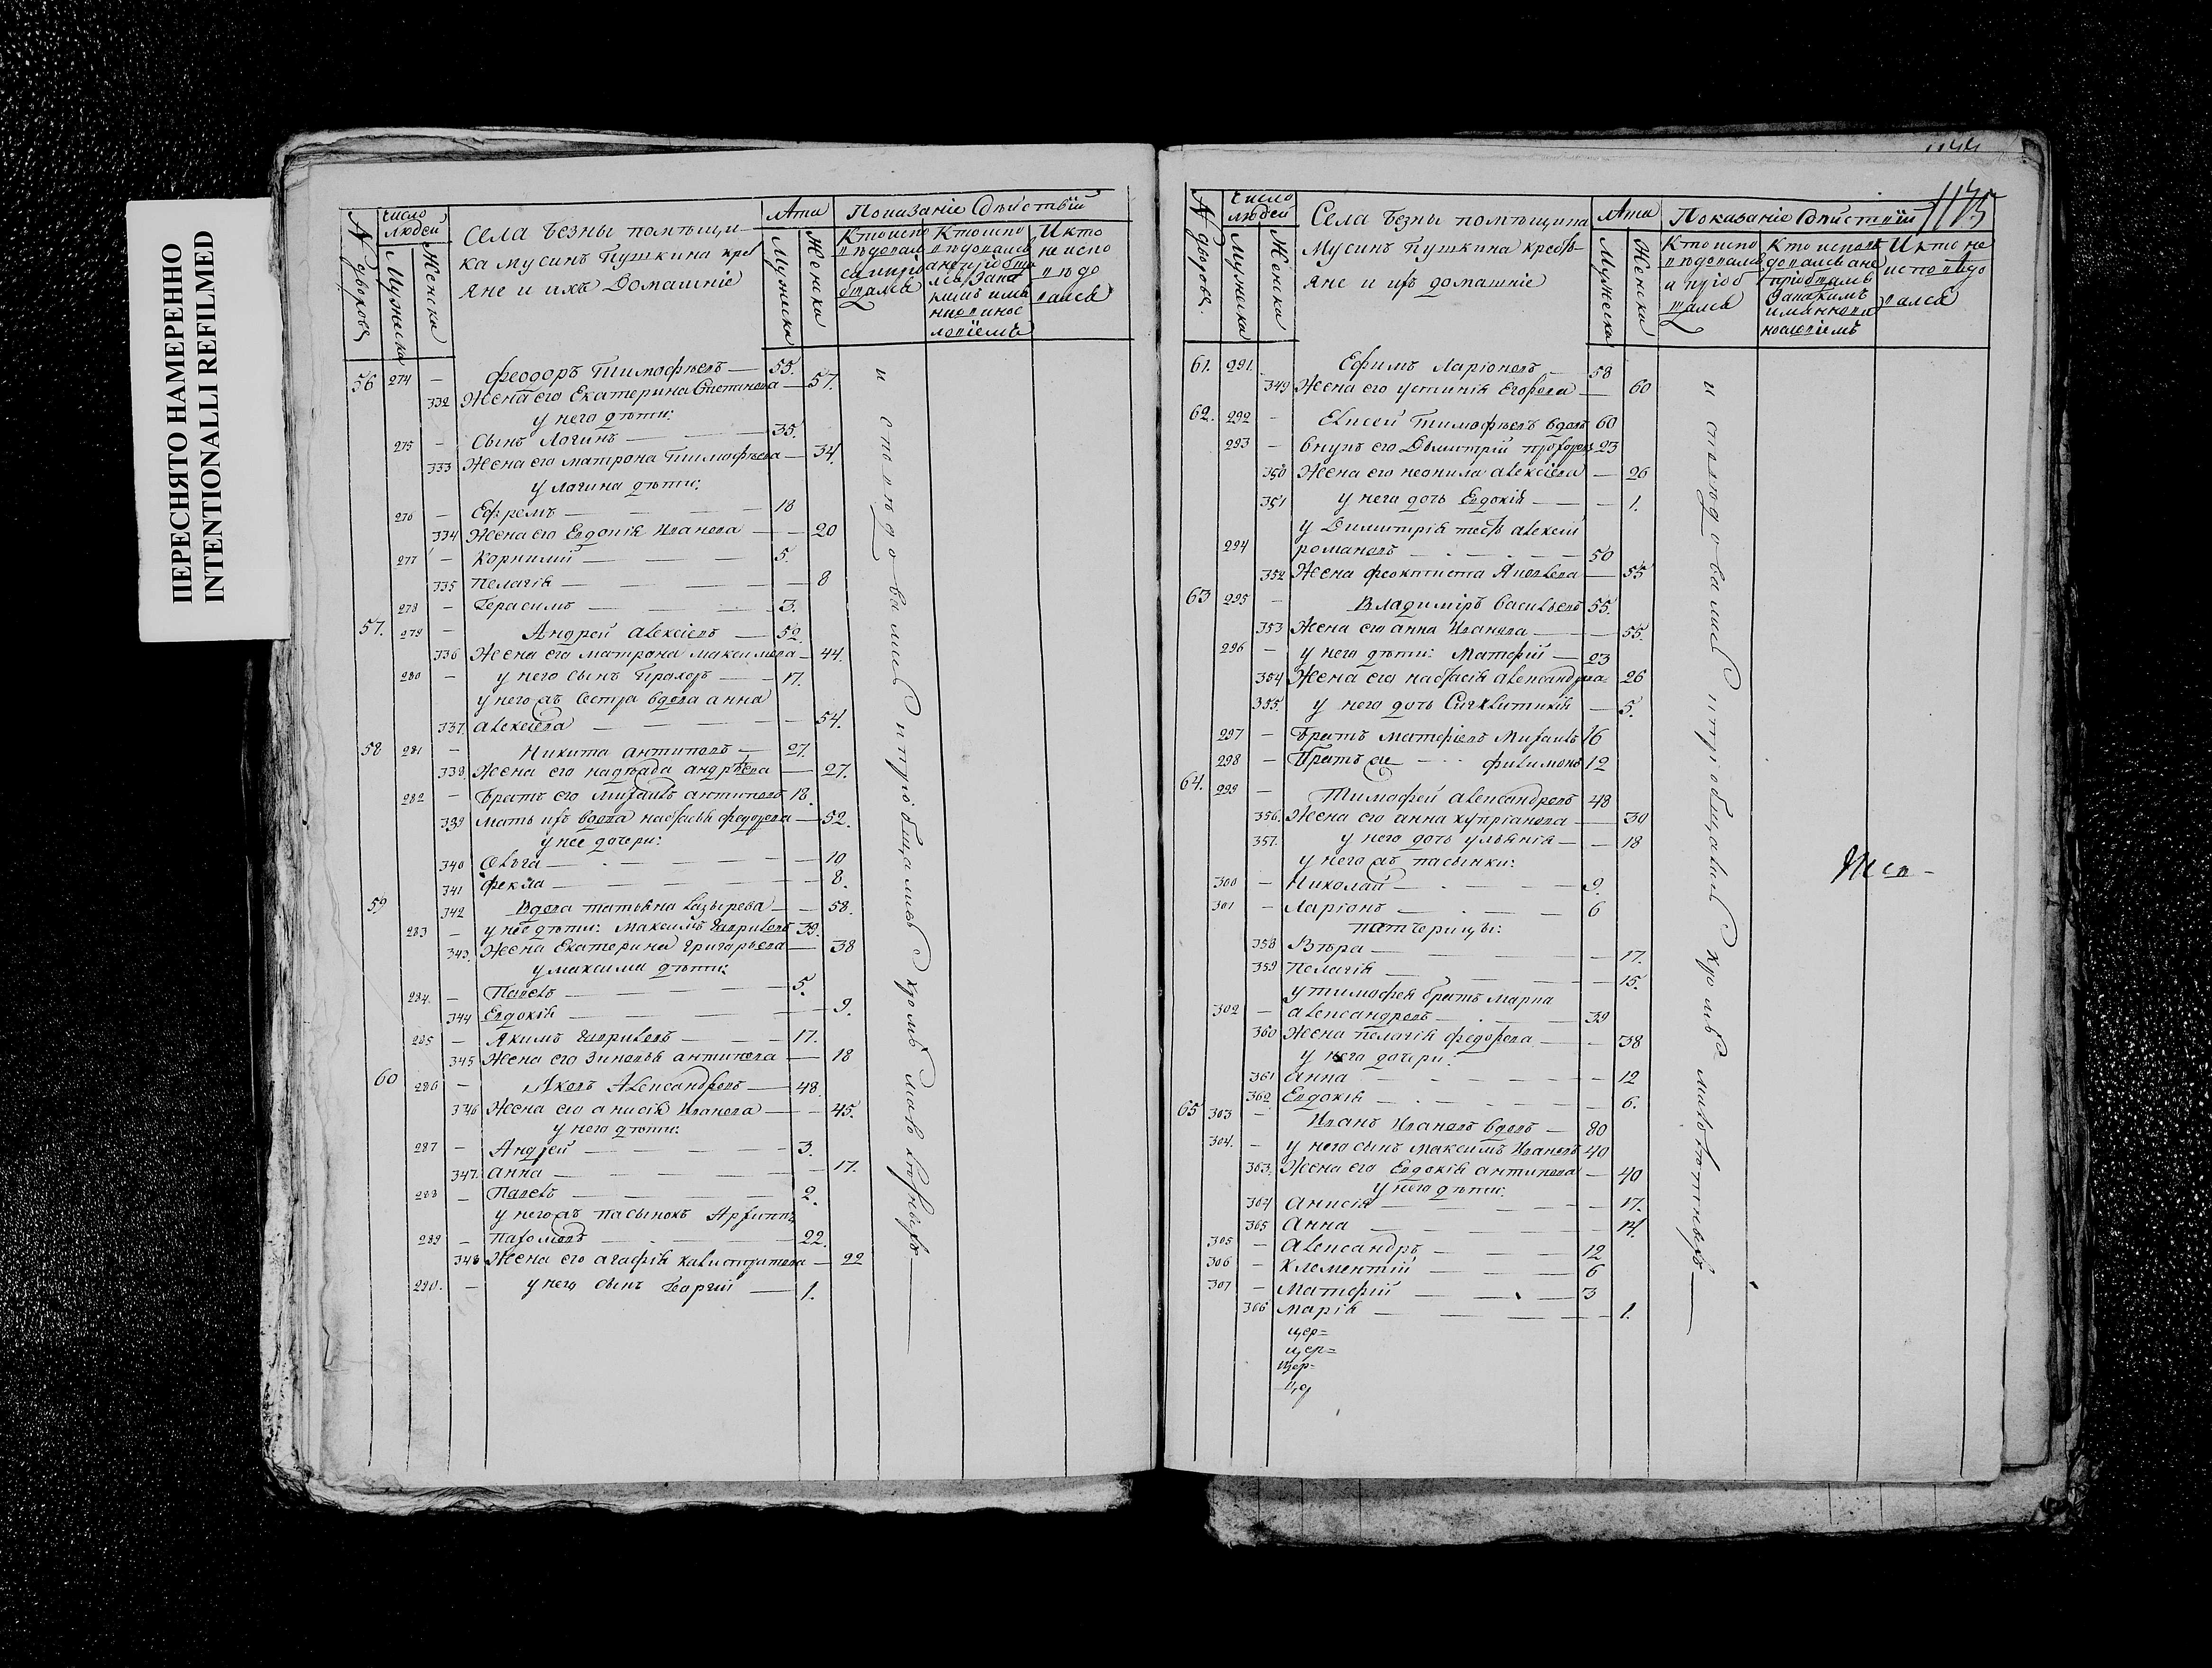 ПЕРЕСНЯТО НАМЕРЕННО
INTENTIONALLI REFILMED
№ дворовъ
число людей
Мужеска
Женска
Села Безны помѣщи-
ка Мусинъ Пушкина кре
яне и ихъ Домашніе
Лѣта
Мужеска
Женска
Показаніе Дѣйствій
Кто испо
вѣдовал
Кто испо
вѣдовалсь
И кто
не испо
вѣдо
вался
56 274 — Феодоръ Тимофѣевъ — 55.
332 Жена его Екатерина Степанова — 57.
у него дѣти:
275 — Сынъ Логинъ — 35.
333 Жена его Матрона Тимофѣева — 34.
у Логина дѣти:
276 — Ефремъ — 18
334 Жена его Евдокія Иванова — 20
277 — Корнилий — 5.
335 Пелагія — 8
278 — Герасимъ — 3.
57. 279 — Андрей Алексіевъ — 52.
336 Жена его Матрона Максимова — 44.
280 — у него сынъ Прохоръ — 17.
у него жъ Сестра вдова Анна
337. Алексіева — 54.
58 281 — Никита Антиповъ — 27.
338 Жена его Надѣжда Андрѣева — 27.
282 — Братъ его Михаилъ Антиповъ 18.
339 Мать ихъ вдова Настасья Федорова — 52.
у нее дочери:
340 Ольга — 10
341 Фекла — 8.
59 342 Вдова Татьяна Лазырева — 58.
283 — у нее дѣти: Максимъ Гавриловъ 39.
343. Жена Екатерина Григорьева — 38
у Максима дѣти:
284. — Павелъ — 5.
344 Евдокія — 9.
285 — Якимъ Гавриловъ — 17.
345 Жена его Зиновья Антипова — 18
60 286 — Яковъ Александровъ — 48.
346 Жена его Анисія Иванова — 45.
у него дѣти:
287 — Андрей — 3.
347. Анна — 17.
288 — Павелъ — 2.
у него жъ пасынокъ Архиппъ
289 — Пахомовъ — 22.
348 Жена его Агафія Калистратова — 22
290. — у него сынъ Георгий — 1.
исповѣдовались и пріобщались кромѣ малолѣтныхъ
1175
№ дворовъ.
Число людей
Мужеска
Женска
Села Безны помѣщика
Мусинъ Пушкина кресть
яне и ихъ домашніе
Лѣта
Мужеска
Женска
Показаніе Дѣйствій
Кто испо
вѣдовалс
и пріоб
щался
И кто не
исповѣдо
вался
61. 291. Ефимъ Ларіоновъ — 58
349 Жена его Устинія Егорова — 60
62. 292 — Елисей Тимофѣевъ вдовъ 60
293 — Внукъ его Дмитрій Прохоровъ 23
350 Жена его Неонила Алексіева — 26
351 у него дочь Евдокія — 1.
у Димитрія тесть Алексій
294 Романовъ — 50
352 Жена Феоктиста Яковлева — 55
63 295 — Владиміръ Васильевъ 55.
353 Жена его Анна Иванова — 55.
296 — у него дѣти: Матфій — 23
354 Жена его Настасія Александрова 26
355. у него дочь Сигклитикія — 5.
297 — Братъ Матфіевъ Михаилъ 16
298 — Братъ же — Филимонъ 12
64. 299 — Тимофей Александровъ 48
356. Жена его Анна Купріанова — 30
357. у него дочь Ульянія — 18
у него жъ пасынки:
300 — Николай — 9.
301 — Ларіонъ — 6
патчерицы:
358 Вѣра — 17.
359 Пелагія — 15.
у Тимофея братъ Марка
302 — Александровъ — 39
360 Жена Пелагія Федорова — 38
у него дочери:
361 Анна — 12
362 Евдокія — 6.
65 303 — Иванъ Ивановъ вдовъ — 80
304. — у него сынъ Максимъ Ивановъ 40
363. Жена его Евдокія Антипова — 40
у него дѣти:
364 Анисія — 17.
365 Анна — 14.
305 — Александръ — 12
306 — Клементій — 6
307 — Матфій — 3
366 Марія — 1.
цер=
цер=
цер=
исповѣдовались и пріобщались кромѣ малолѣтныхъ